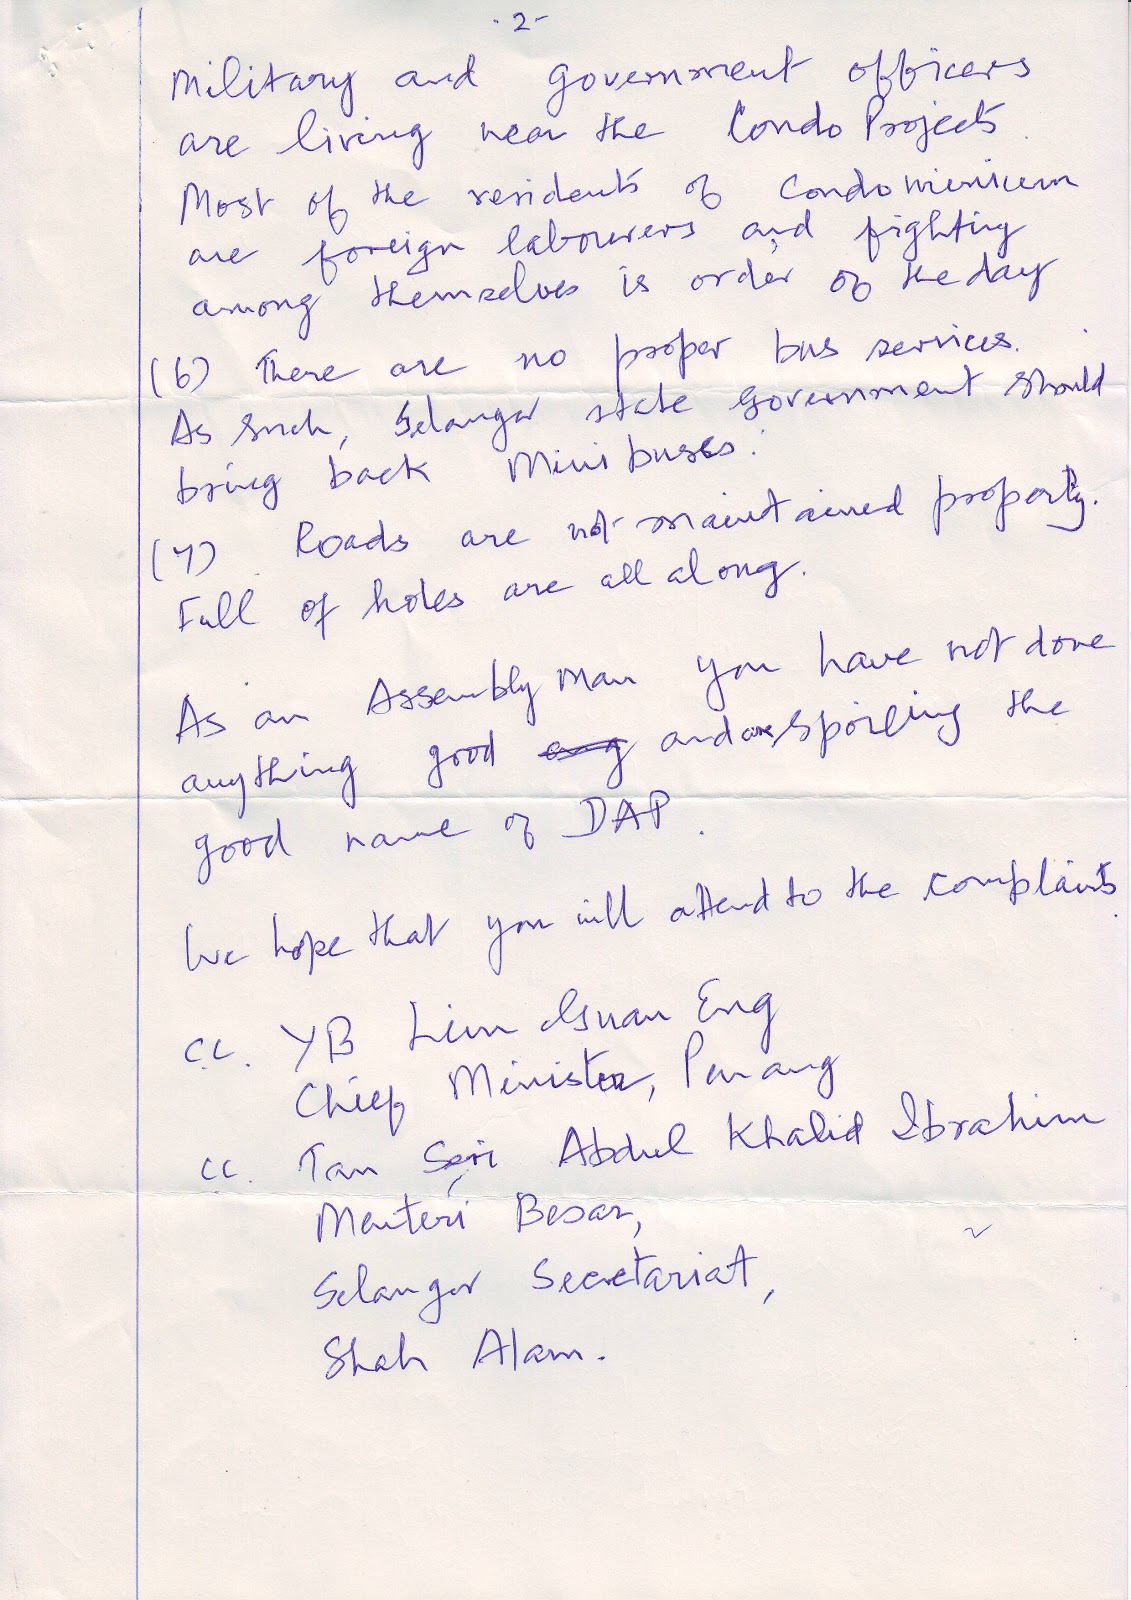 - 2 -
Military and government officers
are living near the Condo Projects.
Most of the residents of Condominicum
are foreign labourers and fighting
among themselves is order of the day
(6) There are no proper bus services.
As such, Selangor state Government should
bring back Mini buses.
(7) Roads are not maintained properly.
Full of holes are all along.
As an Assembly man you have not done
anything good and are spoiling the
good name of DAP.
We hope that you will attend to the complaints.
c.c. YB Lim Guan Eng
Chief Minister, Penang
cc. Tan Seri Abdul Khalid Ibrahim
Menteri Besar,
Selangor Secretariat,
Shah Alam.